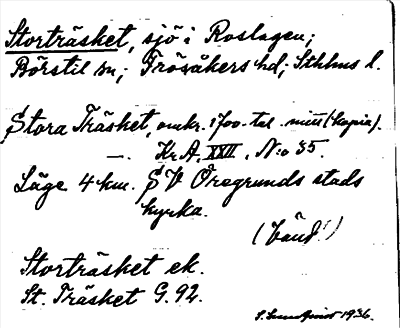 Storträsket, sjö i Roslagen;
Börstil sn; Frösåkers hd; Sthlms l.
Stora Träsket, omkr. 1700-tal mitt (kopia).
—. Kr. A. XXII. N:o 35.
Läge 4 km. SV Öregrunds stads
kyrka.
(Vänd!)
Storträsket ek.
St. Träsket G. 92.
1936.